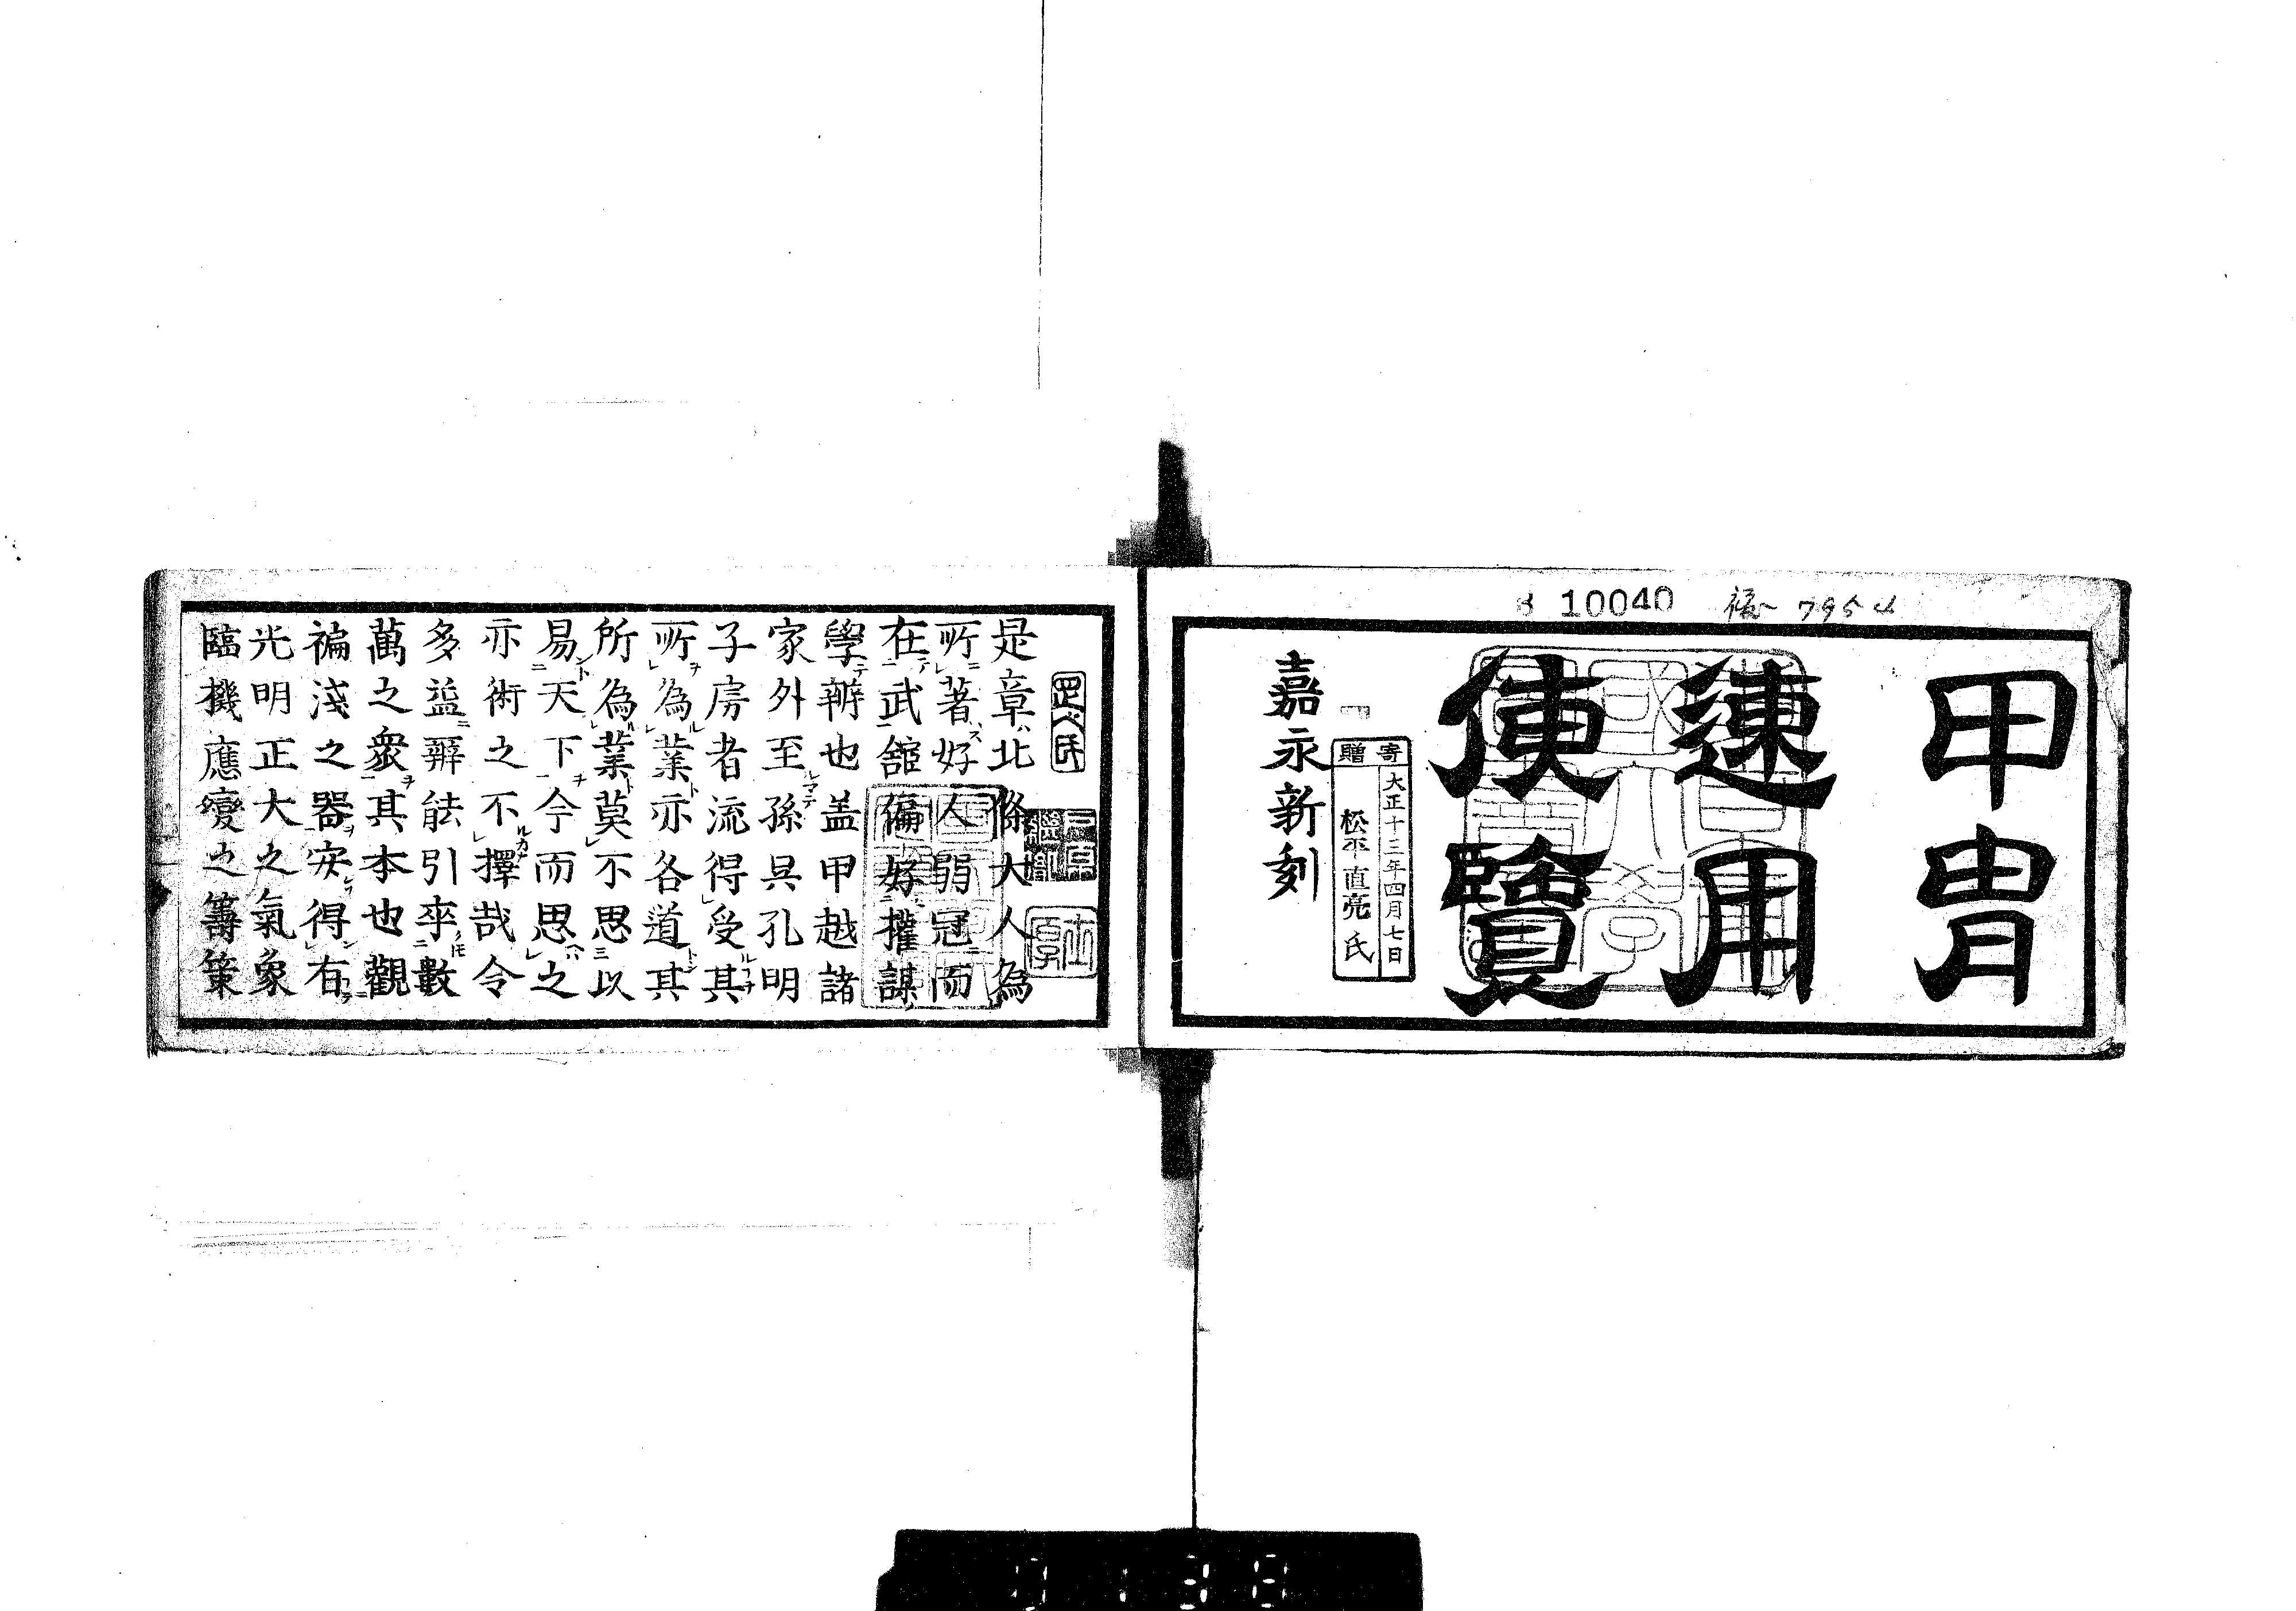 10040
甲冑
速用
便覽
寄贈
大正十三年四月七日
松平直亮氏
嘉永新刻
是章北條大人為
所著好人弱冠而
在武舘偏好權謀
學辨也盖甲越諸
家外至孫呉孔明
子房者流得受其
所為業亦各道其
所為業莫不思以
易天下今而思之
亦術之不擇哉令
多益辨能引率數
萬之衆其本也觀
褊淺之器安得有
光明正大之氣象
臨機應變之籌策